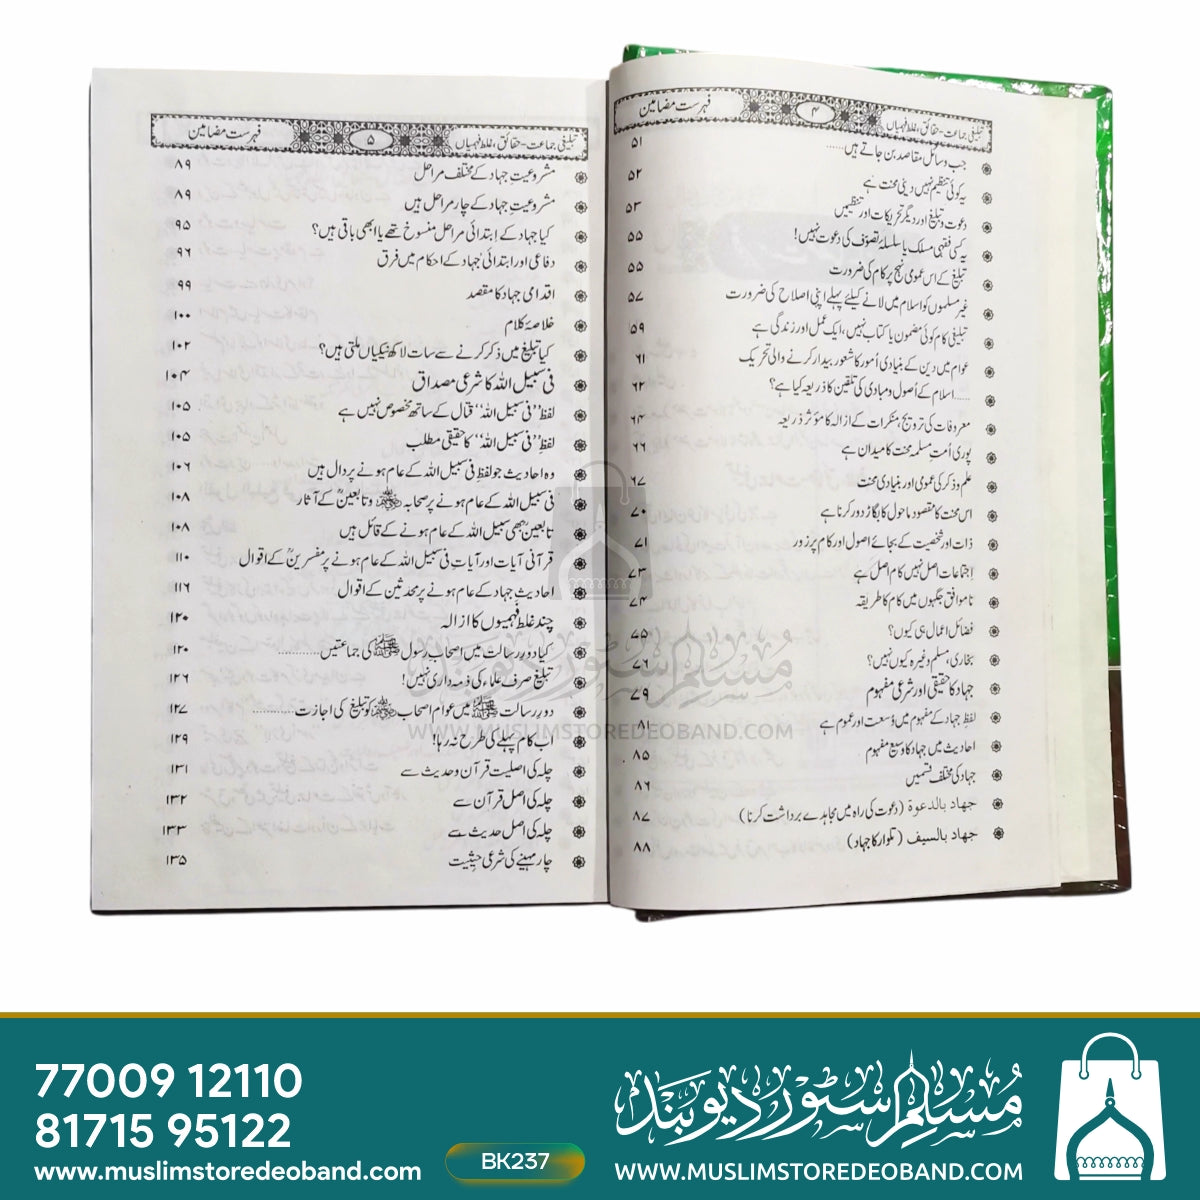 تبلیغی جماعت-حقائق، غلط فہمیاں ۴ فہرست مضامین
جب وسائل مقاصد بن جاتے ہیں........ ۵۱
یہ کوئی تنظیم نہیں دینی محنت ہے ۵۲
دعوت و تبلیغ اور دیگر تحریکات اور تنظیمیں ۵۳
یہ کسی فقہی مسلک یا سلسلۂ تصوّف کی دعوت نہیں! ۵۵
تبلیغ کے اس عمومی نہج پر کام کی ضرورت ۵۵
غیر مسلموں کو اسلام میں لانے کیلئے پہلے اپنی اصلاح کی ضرورت ۵۷
تبلیغی کام کوئی مضمون یا کتاب نہیں، ایک عمل اور زندگی ہے ۵۹
عوام میں دین کے بنیادی اُمور کا شعور بیدار کرنے والی تحریک ۶۱
......اسلام کے اُصول و مبادی کی تلقین کا ذریعہ کیا ہے؟ ۶۲
معروفات کی ترویج، منکرات کے ازالہ کا مؤثر ذریعہ ۶۴
پوری اُمتِ مسلمہ محنت کا میدان ہے ۶۶
علم و ذکر کی عمومی اور بنیادی محنت ۶۷
اس محنت کا مقصود ماحول کا بگاڑ دور کرنا ہے ۷۰
ذات اور شخصیت کے بجائے اصول اور کام پر زور ۷۱
اجتماعات اصل نہیں کام اصل ہے ۷۳
ناموافق جگہوں میں کام کا طریقہ ۷۴
فضائل اعمال ہی کیوں؟ ۷۵
بخاری، مسلم وغیرہ کیوں نہیں؟ ۷۶
جہاد کا حقیقی اور شرعی مفہوم ۷۹
لفظِ جہاد کے مفہوم میں وُسعت اور عموم ہے ۸۱
احادیث میں جہاد کا وسیع مفہوم ۸۵
جہاد کی مختلف قسمیں ۸۶
جهاد بالدعوة (دعوت کی راہ میں مجاہدے برداشت کرنا) ۸۷
جهاد بالسيف (تلوار کا جہاد) ۸۸
تبلیغی جماعت-حقائق، غلط فہمیاں ۵ فہرست مضامین
مشروعیتِ جہاد کے مختلف مراحل ۸۹
مشروعیتِ جہاد کے چار مراحل ہیں ۸۹
کیا جہاد کے ابتدائی مراحل منسوخ تھے یا ابھی باقی ہیں؟ ۹۵
دفاعی اور ابتدائی جہاد کے احکام میں فرق ۹۶
اقدامی جہاد کا مقصد ۹۹
خلاصۂ کلام ۱۰۰
کیا تبلیغ میں ذکر کرنے سے سات لاکھ نیکیاں ملتی ہیں؟ ۱۰۲
فی سبیل اللہ کا شرعی مصداق ۱۰۴
لفظِ ”فی سبیل اللہ“ قتال کے ساتھ مخصوص نہیں ہے ۱۰۵
لفظِ ”فی سبیل اللہ“ کا حقیقی مطلب ۱۰۵
وہ احادیث جو لفظِ فی سبیل اللہ کے عام ہونے پر دال ہیں ۱۰۶
فی سبیل اللہ کے عام ہونے پر صحابہ ﷺ و تابعینؒ کے آثار ۱۰۸
تابعین بھی سبیل اللہ کے عام ہونے کے قائل ہیں ۱۰۸
قرآنی آیات اور آیات فی سبیل اللہ کے عام ہونے پر مفسرینؒ کے اقوال ۱۱۰
احادیثِ جہاد کے عام ہونے پر محدثین کے اقوال ۱۱۶
چند غلط فہمیوں کا ازالہ ۱۲۰
کیا دورِ رسالت میں اصحابِ رسول ﷺ کی جماعتیں........... ۱۲۰
تبلیغ صرف علماء کی ذمہ داری نہیں! ۱۲۶
دورِ رسالت ﷺ میں عوام اصحاب ﷺ کو تبلیغ کی اجازت........ ۱۲۷
اب کام پہلے کی طرح نہ رہا! ۱۲۹
چلہ کی اصلیت قرآن و حدیث سے ۱۳۱
چلہ کی اصل قرآن سے ۱۳۲
چلہ کی اصل حدیث سے ۱۳۳
چار مہینے کی شرعی حیثیت ۱۳۵
مسلم سٹور دیوبند
WWW.MUSLIMSTOREDEOBAND.COM
77009 12110
81715 95122
www.muslimstoredeoband.com
BK237
مسلم سٹور دیوبند
WWW.MUSLIMSTOREDEOBAND.COM